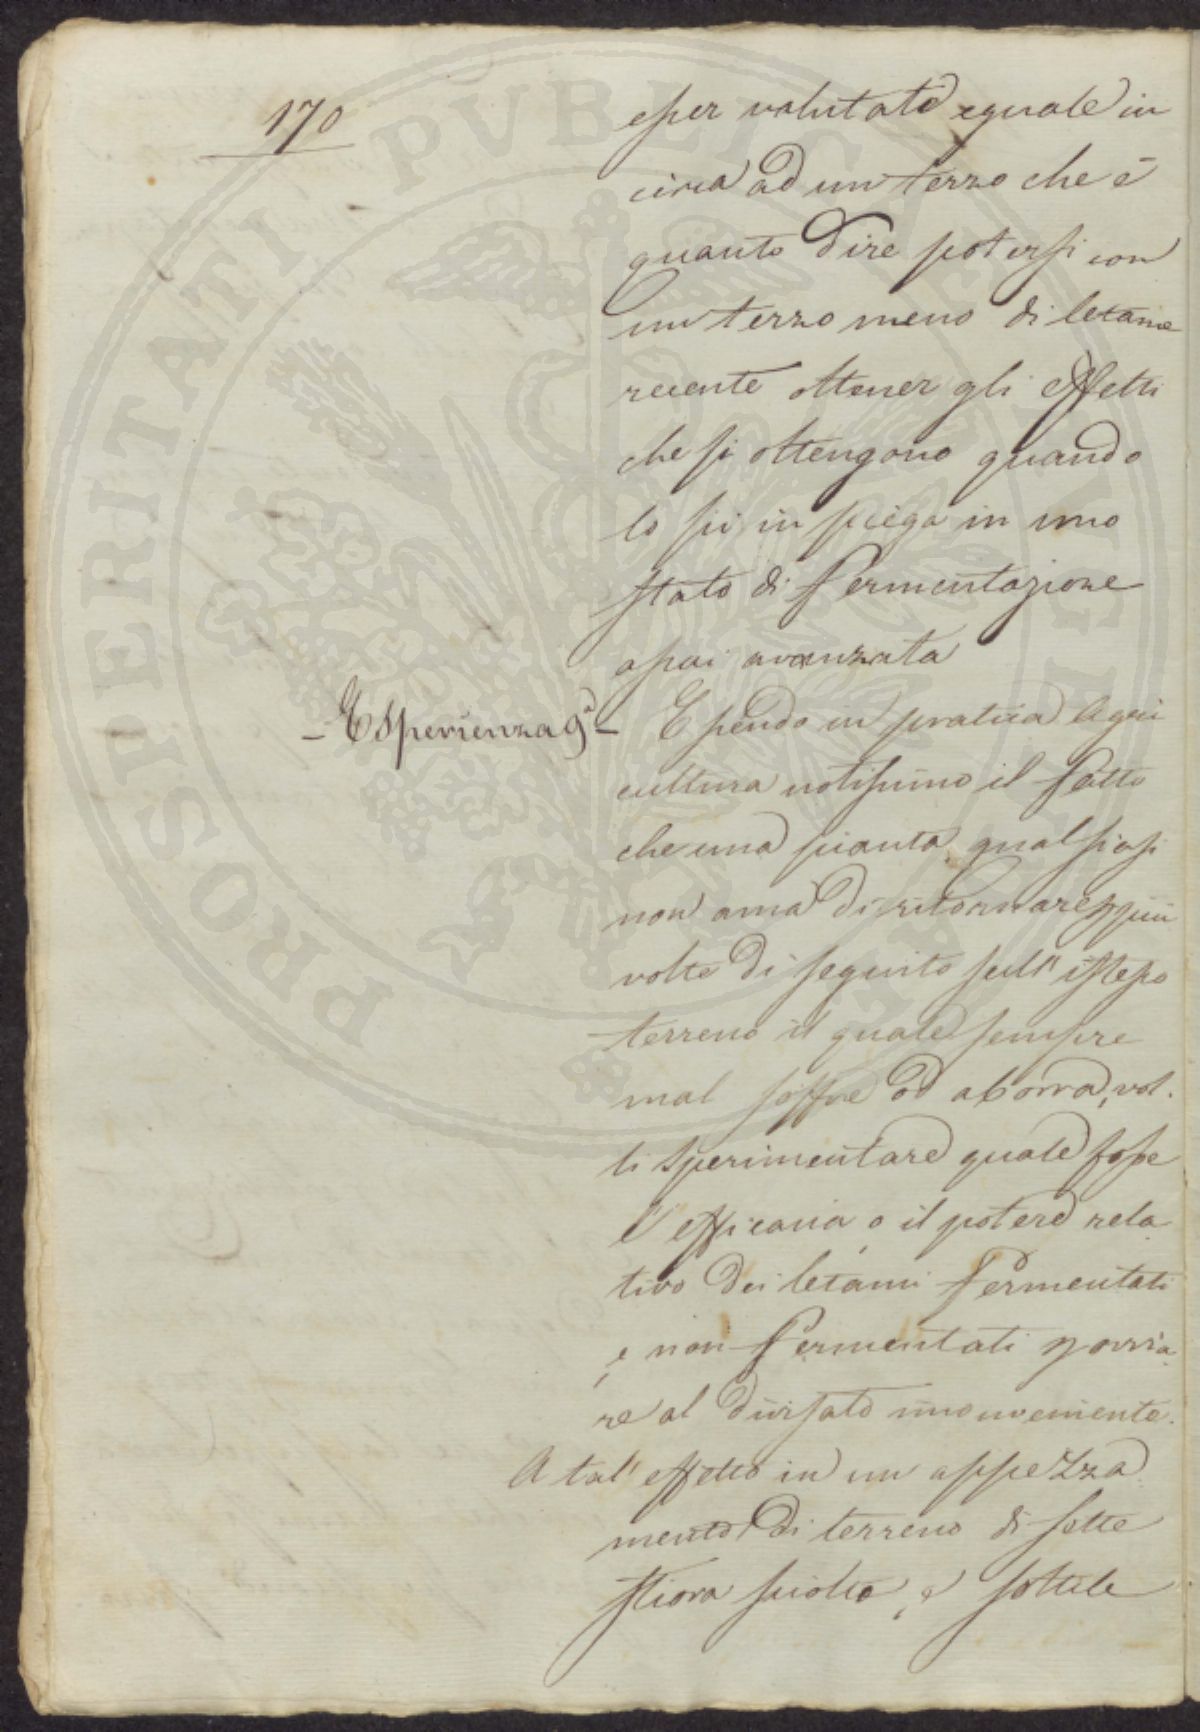 170
esser valutato eguale in
circa ad un terzo che è
quanto dire potersi con
un terzo meno di letame
recente ottener gli effetti
che si ottengono quando
lo si impiega in uno
stato di fermentazione
assai avanzata
- Esperienza 9ª -
Essendo in pratica Agri
cultura notissimo il fatto
che una pianta qualsiasi
non ama di ritornare più
volte di seguito sull' istesso
terreno il quale sempre
mal soffre od aborra, vol.
li sperimentare quale fosse
l' efficacia o il potere rela
tivo dei letami fermentati
e non fermentati
re al divisato inconveniente.
A tal' effetto in un appezza
mento di terreno di sette
stiora sciolto, e sottile
PROSPERITATI PVBLICAE AVGENDAE